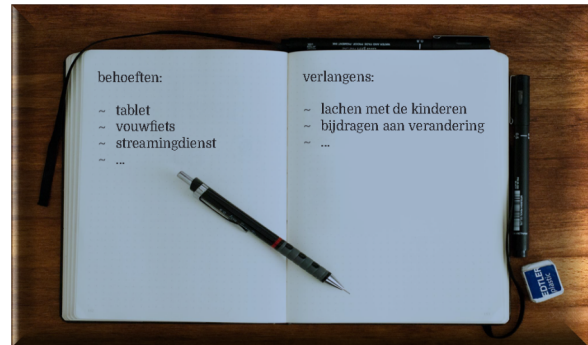 behoeften:
~ tablet
~ vouwfiets
~ streamingdienst
~ ...
verlangens:
~ lachen met de kinderen
~ bijdragen aan verandering
~ ...
EDTLER
plastic